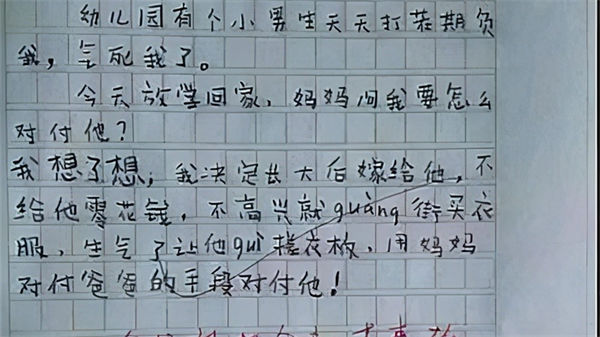 幼儿园有个小男生天天打架期负
我，气死我了。
今天放学回家，妈妈问我要怎么
对付他？
我想了想，我决定长大后嫁给他，不
给他零花钱，不高兴就guàng街买衣
服，生气了让他guì搓衣板，用妈妈
对付爸爸的手段对付他！